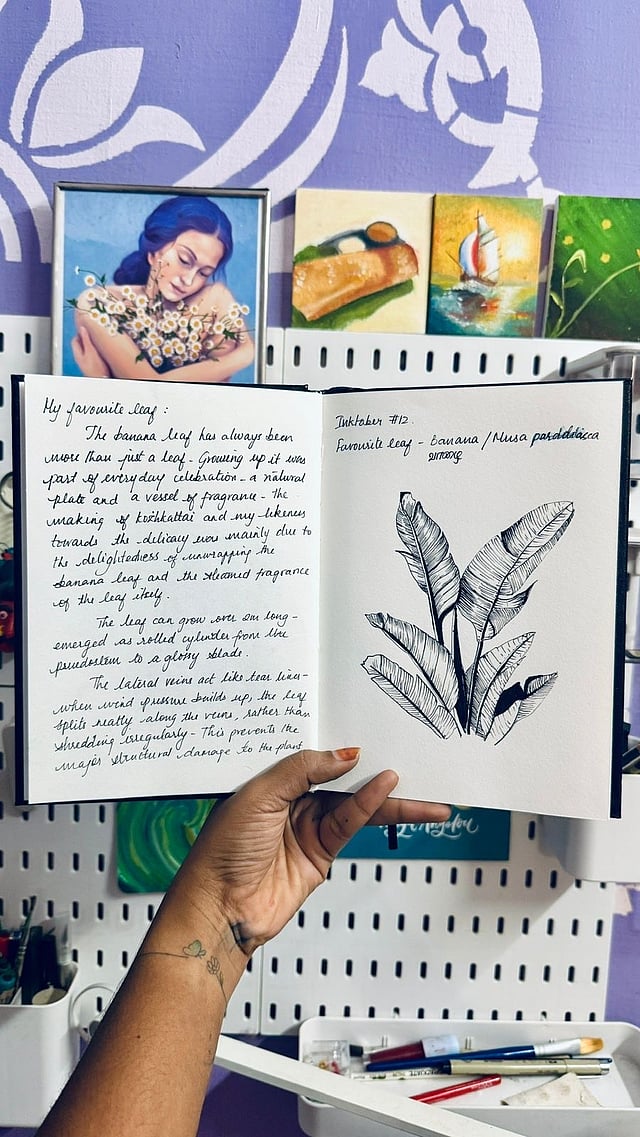 My favourite leaf :
The banana leaf has always been
more than just a leaf - Growing up it was
part of everyday celebration - a natural
plate and a vessel of fragrance - the
making of kozhkattai and my likeness
towards the delicacy was mainly due to
the delightedness of unwrapping the
banana leaf and the steamed fragrance
of the leaf itself.
The leaf can grow over 2m long -
emerged as rolled cylinder from the
pseudostem to a glossy blade.
The lateral veins act like tear lines -
when wind pressure builds up, the leaf
splits neatly along the veins, rather than
shredding irregularly - This prevents the
major structural damage to the plant
Inktober #12.
Favourite leaf - banana / Musa